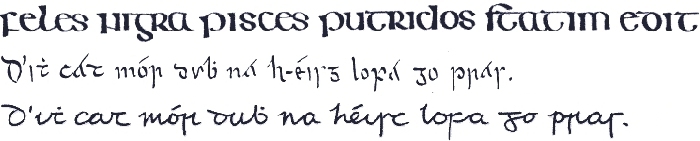 feles nigra pisces putridos statim edit
D'iṫ cat mór duḃ na h-éisg lofa go pras.
D'iṫ cat mór duḃ na héisc lofa go pras.